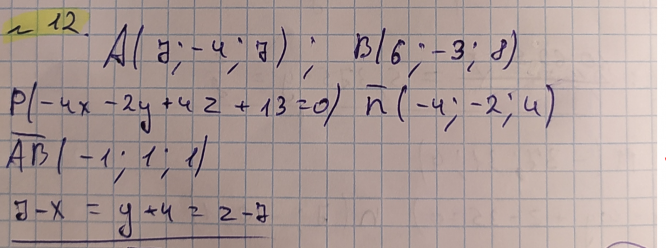 № 12.
A(7;-4;7); B(6;-3;8)
P(-4x-2y+4z+13=0) n̅(-4;-2;4)
A̅B̅(-1;1;1)
7-x = y+4 = z-7